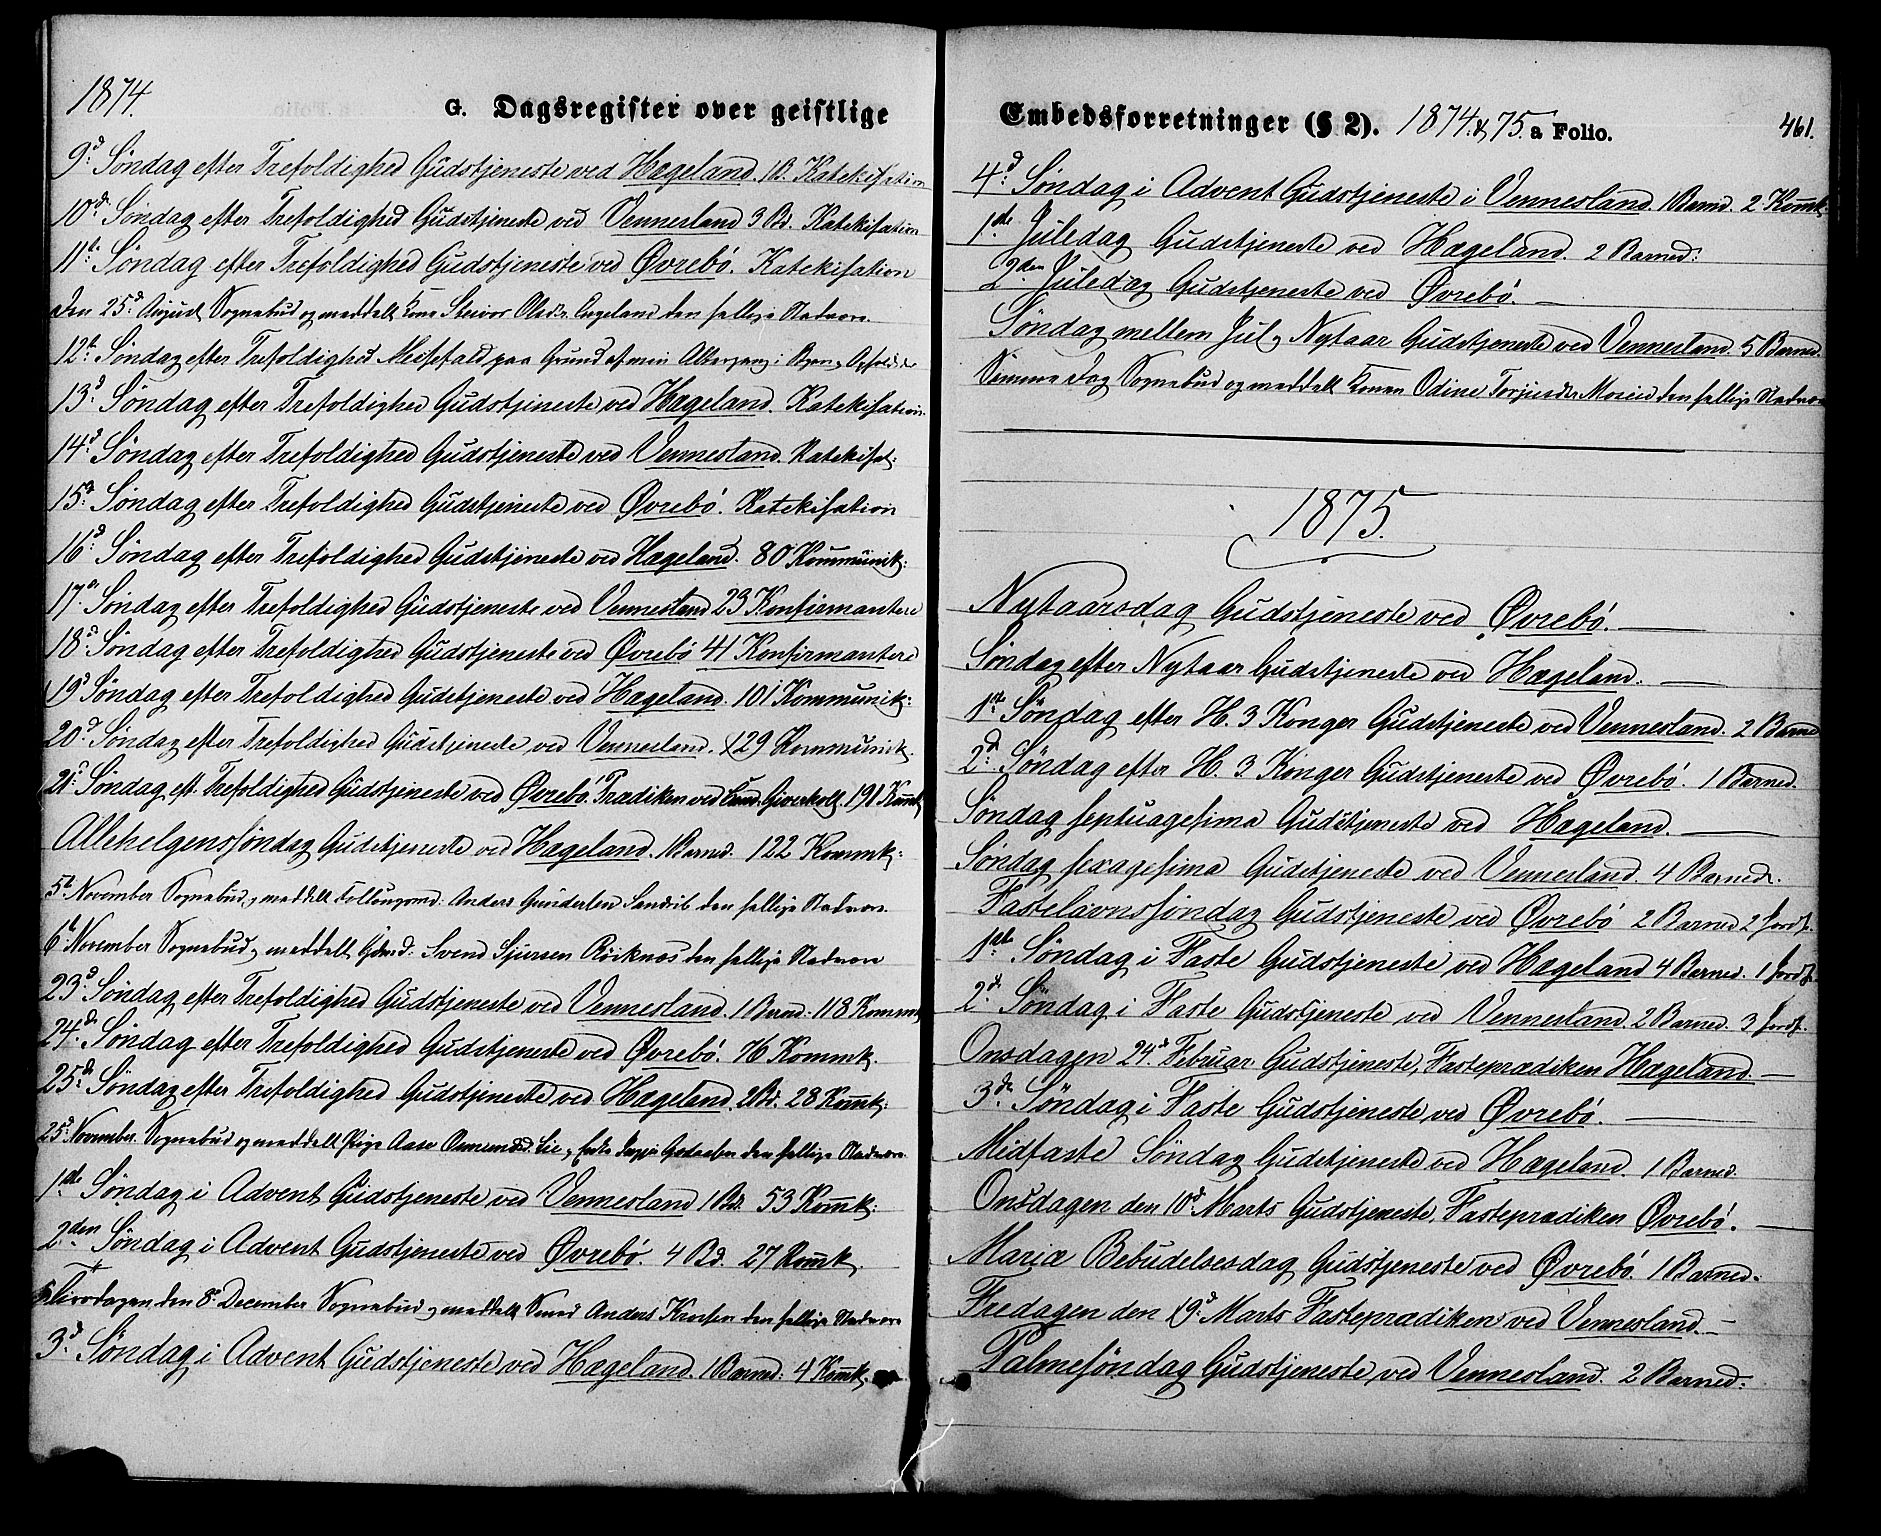 1874.
G. Dagsregister over geistlige
9d. Søndag efter Trefoldighed Gudstjeneste ved Hægeland. 1 B. Katekisation
10d. Søndag efter Trefoldighed Gudstjeneste ved Vennesland 3 Bd. Katekisation
11te Søndag efter Trefoldighed Gudstjeneste ved Øvrebø. Katekisation
Den 25d. August Sognebud og meddelt Kone Steivor Olsdr. Engeland den hellige Nadvere.
12te Søndag efter Trefoldighed Messefald paa Grund af min i Byen
13d. Søndag efter Trefoldighed Gudstjeneste ved Hægeland. Katekisation.
14d. Søndag efter Trefoldighed Gudstjeneste ved Vennesland. Katekisat:
15d. Søndag efter Trefoldighed Gudstjeneste ved Øvrebø. Katekisation
16d. Søndag efter Trefoldighed Gudstjeneste ved Hægeland. 80 Kommunik:
17d. Søndag efter Trefoldighed Gudstjeneste ved Vennesland 23 Konfirmantere
18d. Søndag efter Trefoldighed Gudstjeneste ved Øvrebø 41 Konfirmantere
19d Søndag efter Trefoldighed Gudstjeneste ved Hægeland. 101 Kommunik:
20d. Søndag efter Trefoldighed Gudstjeneste ved Vennesland. 129 Kommunik.
21d. Søndag eft. Trefoldighed Gudstjeneste ved Øvrebø. Prædiken ved Cand. 191 Komk
Allehelgenssøndag Gudstjeneste ved Hægeland. 1 Barned. 122 Kommk:
5t. November Sognebud, meddelt Anders Gundersen den hellige Nadvere.
6t November Sognebud, meddelt Gdmd: Svend Sjursen Røiknes den hellige Nadvere
23d Søndag efter Trefoldighed Gudstjeneste ved Vennesland. 1 Barned. 118 Kommk
24d. Søndag efter Trefoldighed Gudstjeneste ved Øvrebø. 76 Kommk.
25d. Søndag efter Trefoldighed Gudstjeneste ved Hægeland. 2 Bd. 28 Komk:
25d. November. Sognebud og meddelt Pige Aase Lie, Enke den hellige Nadvere.
1ste Søndag i Advent Gudstjeneste ved Vennesland 1 Bd. 53 Komk:
2den Søndag i Advent Gudstjeneste ved Øvrebø. 4 Bd. 27 Komk.
Tirsdagen den 8d. December Sognebud, meddelt Anders den hellige Nadvere
3d. Søndag i Advent Gudstjeneste ved Hægeland. 1 Barned: 4 Komk.
Embedsforretninger (§ 2). 1874 & 75. a Folio. 461.
4d. Søndag i Advent Gudstjeneste i Vennesland. 1 Barned. 2 Komk
1ste Juledag Gudstjeneste ved Hægeland. 2 Barned:
2den Juledag Gudstjeneste ved Øvrebø. —
Søndag mellem Jul, Nytaar Gudstjeneste ved Vennesland. 5 Barned.
Samme Dag Sognebud og meddelt Konen Odine Torjusdr. Moseid den hellige Nadvere
1875.
Nytaarsdag Gudstjeneste ved Øvrebø. —
Søndag efter Nytaar Gudstjeneste ved Hægeland. —
1ste Søndag efter H. 3 Konger Gudstjeneste ved Vennesland. 2 Barned
2d. Søndag efter H. 3 Konger Gudstjeneste ved Øvrebø. 1 Barned.
Søndag septuagesima Gudstjeneste ved Hægeland. —
Søndag sexagesima Gudstjeneste ved Vennesland. 4 Barned.
Fastelavnssøndag Gudstjeneste ved Øvrebø 2 Barned 2 Jordf.
1ste Søndag i Faste Gudstjeneste ved Hægeland 4 Barned. 1 Jordf.
2d. Søndag i Faste Gudstjeneste ved Vennesland 2 Barned. 3 Jordf.
Onsdagen 24d. Februar Gudstjeneste, Fasteprædiken Hægeland —
3d. Søndag i Faste Gudstjeneste ved Øvrebø. —
Midfaste Søndag Gudstjeneste ved Hægeland. 1 Barned.
Onsdagen den 10d. Marts Gudstjeneste, Fasteprædiken Øvrebø. —
Mariæ Bebudelsesdag Gudstjeneste ved Øvrebø. 1 Barned.
Fredagen den 19d. Marts Fasteprædiken ved Vennesland. —
Palmesøndag Gudstjeneste ved Vennesland. 2 Barned.